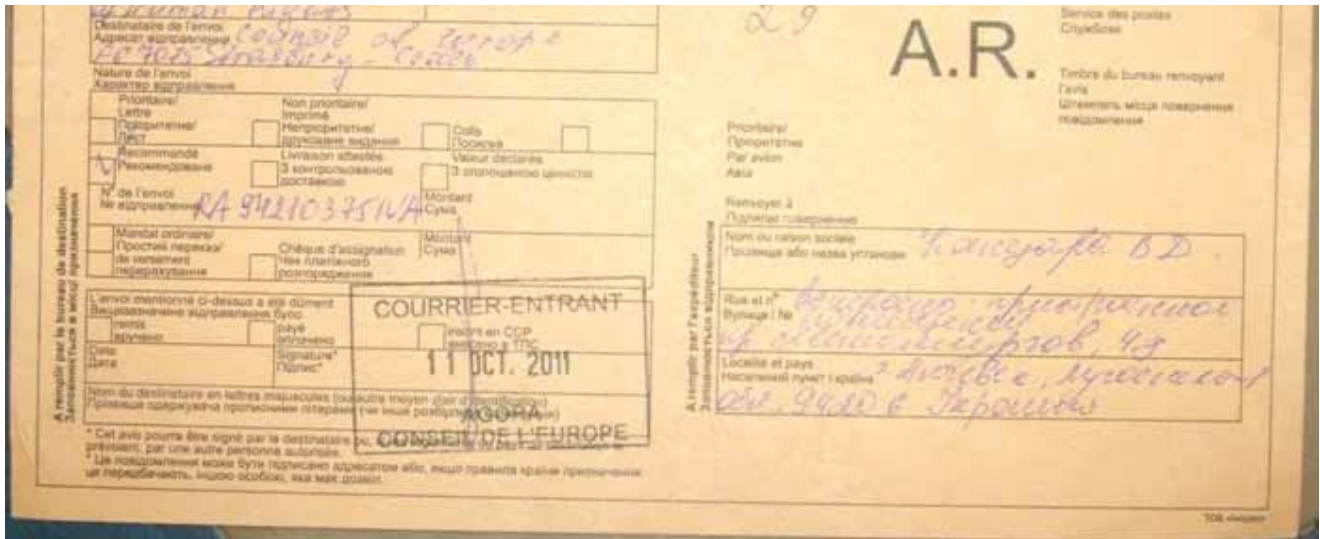 of Human Rights
Destinataire de l'envoi
Адресат відправлення Council of Europe
Strasbourg - Cedex
Nature de l'envoi
Характер відправлення
Prioritaire/
Lettre
Пріоритетне/
Лист
Non prioritaire/
Imprimé
Непріоритетне/
друковане видання
Colis
Посилка
Recommandé
Рекомендоване
Livraison attestée
З контрольованою
доставкою
Valeur déclarée
З оголошеною цінністю
N° de l'envoi
№ відправлення RA 942103751UA
Montant
Сума
Mandat ordinaire/
Простий переказ/
de versement
перерахування
Chèque d'assignation
Чек платіжного
розпорядження
Montant
Сума
L'envoi mentionné ci-dessus a été dûment
Вищезазначене відправлення було
remis
вручено
payé
оплачено
inscrit en CCP
внесено в ТПС
Date
Дата
Signature*
Підпис*
COURRIER-ENTRANT
11 OCT. 2011
AGORA
CONSEIL DE L'EUROPE
Nom du destinataire en lettres majuscules (ou autre moyen clair d'identification)
Прізвище одержувача прописними літерами (чи інше
* Cet avis pourra être signé par le destinataire ou,
prévoient, par une autre personne autorisée.
* Це повідомлення може бути підписано адресатом або, якщо правила країни призначення
це передбачають, іншою особою, яка має дозвіл
A remplir par le bureau de destination
Заповнюється в місці призначення
29
A.R.
Service des postes
Службове
Timbre du bureau renvoyant
l'avis
Штемпель місця повернення
повідомлення
Prioritaire/
Пріоритетне
Par avion
Авіа
Renvoyer à
Підлягає поверненню
A remplir par l'expéditeur
Заповнюється відправником
Nom ou raison sociale
Прізвище або назва установи
В.Д.
Rue et n°
Вулиця і №
пр. Металлургов, 48
Localité et pays
Населений пункт і країна
обл.